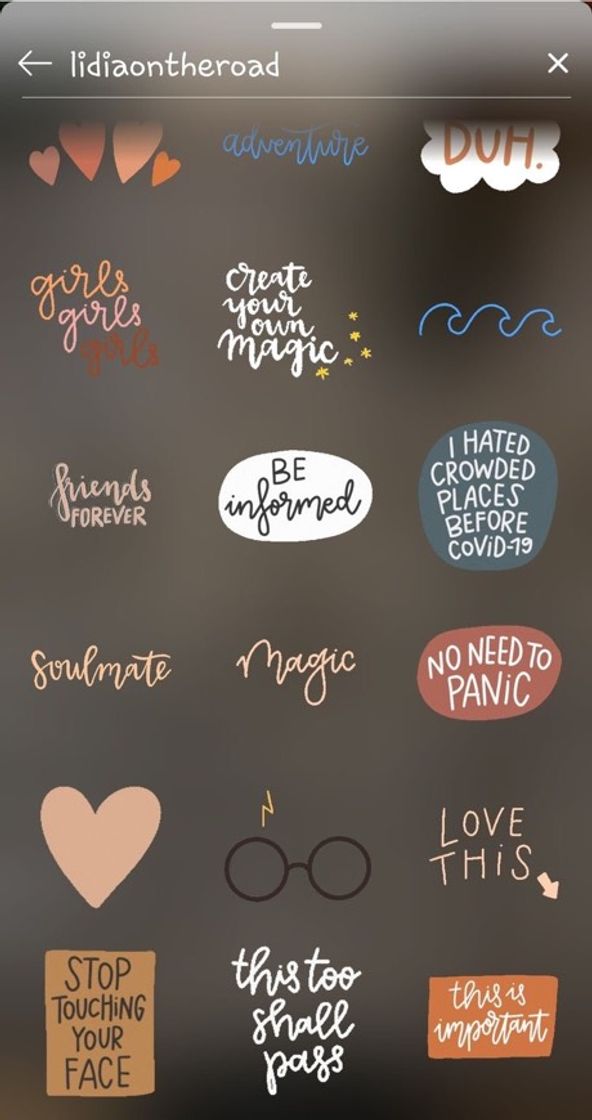 lidiaontheroad
adventure
DUH.
girls
girls
girls
create
your
own
magic
friends
FOREVER
BE
informed
I HATED
CROWDED
PLACES
BEFORE
COViD-19
Soulmate
Magic
NO NEED TO
PANiC
LOVE
THiS
STOP
TOUCHiNG
YOUR
FACE
this too
shall
pass
this is
important